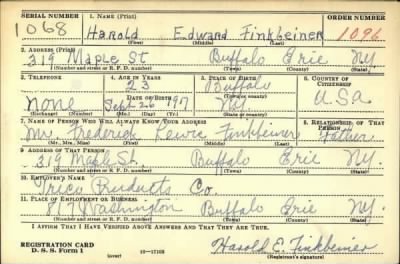 SERIAL NUMBER 1. NAME (Print) ORDER NUMBER
1068 Harold Edward Finkbeiner 1096
(First) (Middle) (Last)
2. ADDRESS (Print)
319 Maple St Buffalo Erie N.Y.
(Number and street or R. F. D. number) (Town) (County) (State)
3. TELEPHONE 4. AGE IN YEARS 5. PLACE OF BIRTH 6. COUNTRY OF CITIZENSHIP
23 Buffalo
DATE OF BIRTH (Town or county)
None Sept 26 1917 N.Y. U.S.a
(Exchange) (Number) (Mo.) (Day) (Yr.) (State or country)
7. NAME OF PERSON WHO WILL ALWAYS KNOW YOUR ADDRESS 8. RELATIONSHIP OF THAT PERSON
Mr. Frederick Lewis Finkbeiner Father
(Mr., Mrs., Miss) (First) (Middle) (Last)
9. ADDRESS OF THAT PERSON
319 Maple St. Buffalo Erie N.Y.
(Number and street or R. F. D. number) (Town) (County) (State)
10. EMPLOYER'S NAME
Trico Products Co.
11. PLACE OF EMPLOYMENT OR BUSINESS
817 Washington Buffalo Erie N.Y.
(Number and street or R. F. D. number) (Town) (County) (State)
I AFFIRM THAT I HAVE VERIFIED ABOVE ANSWERS AND THAT THEY ARE TRUE.
REGISTRATION CARD
D. S. S. Form 1 (over) 16—17105 Harold E. Finkbeiner
(Registrant's signature)